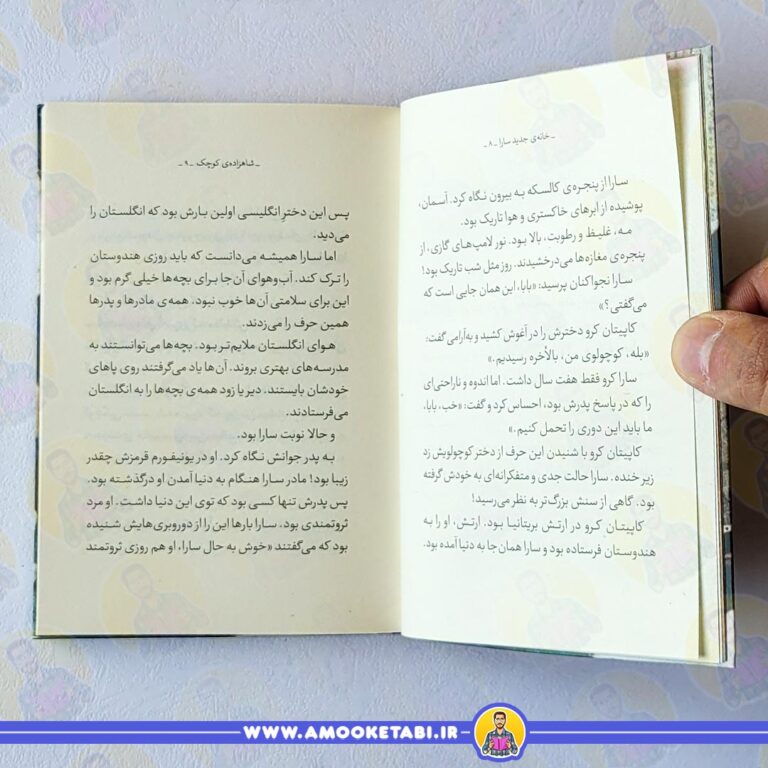 ـ خانه‌ی جدید سارا ـ ۸ ـ
سارا از پنجره‌ی کالسکه به بیرون نگاه کرد. آسمان،
پوشیده از ابرهای خاکستری و هوا تاریک بود.
مه، غلیظ و رطوبت، بالا بود. نور لامپ‌های گازی، از
پنجره‌ی مغازه‌ها می‌درخشیدند. روز مثل شب تاریک بود!
سارا نجواکنان پرسید: «بابا، این همان جایی است که
می‌گفتی؟»
کاپیتان کرو دخترش را در آغوش کشید و به‌آرامی گفت:
«بله، کوچولوی من، بالأخره رسیدیم.»
سارا کرو فقط هفت سال داشت. اما اندوه و ناراحتی‌ای
را که در پاسخ پدرش بود، احساس کرد و گفت: «خب، بابا،
ما باید این دوری را تحمل کنیم.»
کاپیتان کرو با شنیدن این حرف از دختر کوچولویش زد
زیر خنده. سارا حالت جدی و متفکرانه‌ای به خودش گرفته
بود. گاهی از سنش بزرگ‌تر به نظر می‌رسید!
کاپیتان کرو در ارتش بریتانیا بود. ارتش، او را به
هندوستان فرستاده بود و سارا همان جا به دنیا آمده بود.
ـ شاهزاده‌ی کوچک ـ ۹ ـ
پس این دخترِ انگلیسی اولین بارش بود که انگلستان را
می‌دید.
اما سارا همیشه می‌دانست که باید روزی هندوستان
را ترک کند. آب‌وهوای آن‌جا برای بچه‌ها خیلی گرم بود و
این برای سلامتی آن‌ها خوب نبود. همه‌ی مادرها و پدرها
همین حرف را می‌زدند.
هوای انگلستان ملایم‌تر بود. بچه‌ها می‌توانستند به
مدرسه‌های بهتری بروند. آن‌ها یاد می‌گرفتند روی پاهای
خودشان بایستند. دیر یا زود همه‌ی بچه‌ها را به انگلستان
می‌فرستادند.
و حالا نوبت سارا بود.
به پدر جوانش نگاه کرد. او در یونیفورم قرمزش چقدر
زیبا بود! مادر سارا هنگام به دنیا آمدن او درگذشته بود.
پس پدرش تنها کسی بود که توی این دنیا داشت. او مرد
ثروتمندی بود. سارا بارها این را از دوروبری‌هایش شنیده
بود که می‌گفتند «خوش به حال سارا، او هم روزی ثروتمند
WWW.AMOOKETABI.IR